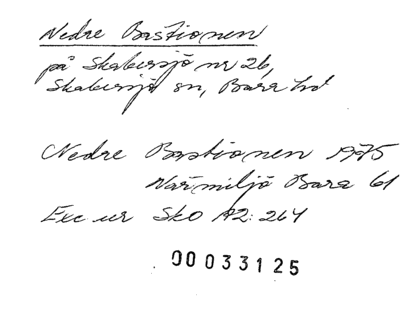 Nedre Bastionen
på Skabersjö nr 26,
Skabersjö sn, Bara hd
Nedre Bastionen 1775
Närmiljö Bara 61
Exc ur Sko A2:264
00033125